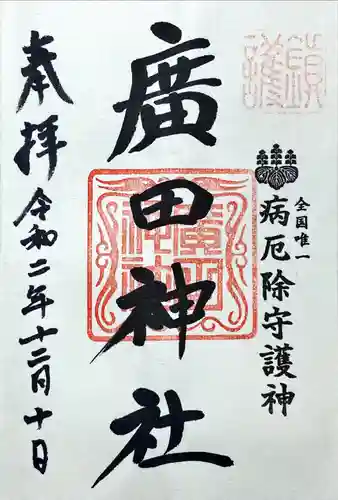 鎮護
全国唯一
病厄除守護神
廣田神社
奉拝
令和二年十二月十日